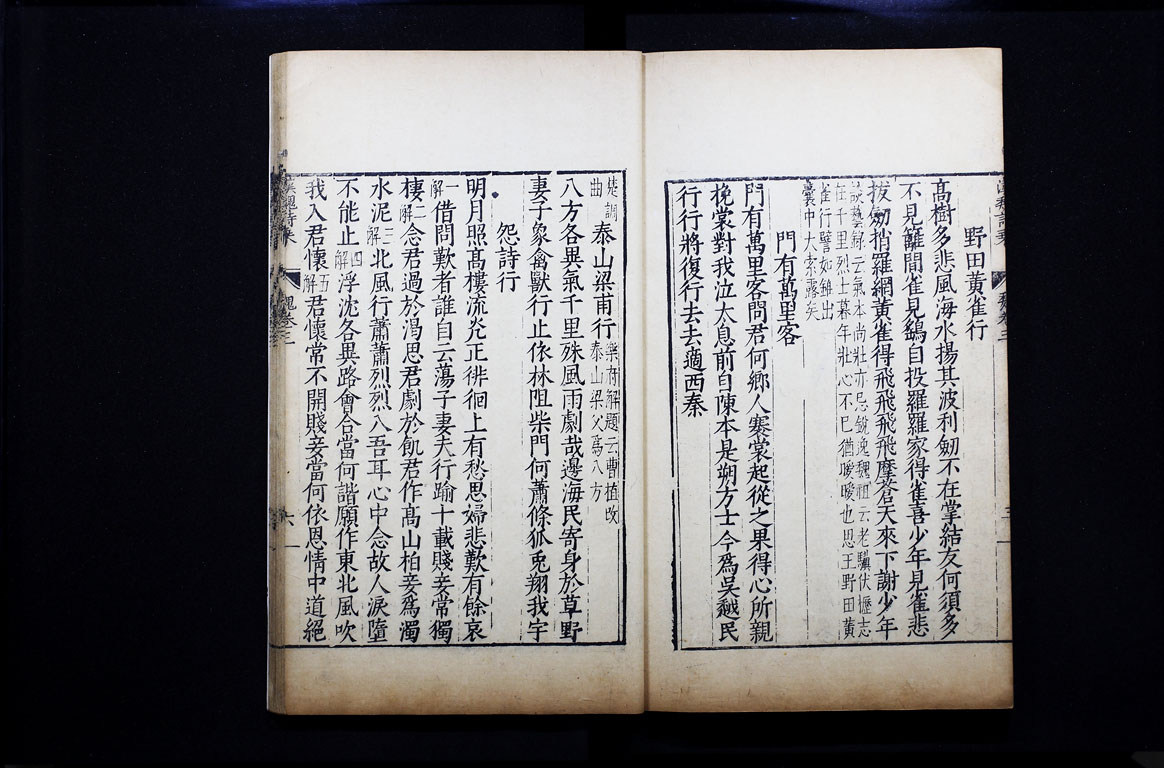 野田黃雀行
高樹多悲風海水揚其波利劒不在掌結友何須多
不見籬間雀見鷂自投羅羅家得雀喜少年見雀悲
拔劒捎羅網黃雀得飛飛飛飛摩蒼天來下謝少年
談藝錄云氣本尚壯亦忌銳逸魏祖云老驥伏櫪志
在千里烈士暮年壯心不已猶曖曖也思王野田黃
雀行譬如錐出
囊中大索露矣
門有萬里客
門有萬里客問君何鄉人褰裳起從之果得心所親
挽裳對我泣太息前自陳本是朔方士今爲吳越民
行行將復行去去適西秦
楚調
曲
泰山梁甫行
樂府解題云曹植改
泰山梁父爲八方
八方各異氣千里殊風雨劇哉邊海民寄身於草野
妻子象禽獸行止依林阻柴門何蕭條狐兎翔我宇
怨詩行
明月照髙樓流光正徘徊上有愁思婦悲歎有餘哀
一解借問歎者誰自云蕩子妻夫行踰十載賤妾常獨
棲二解念君過於渴思君劇於飢君作髙山柏妾爲濁
水泥三解北風行蕭蕭烈烈入吾耳心中念故人淚墮
不能止四解浮沈各異路會合當何諧願作東北風吹
我入君懷五解君懷常不開賤妾當何依恩情中道絕
漢魏詩乘
魏卷三
六